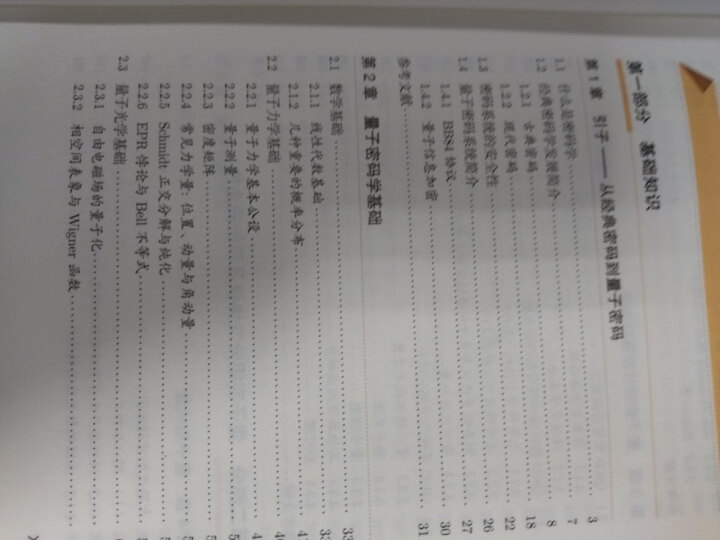 第一部分 基础知识
第 1 章 引子——从经典密码到量子密码 3
1.1 什么是密码学 7
1.2 经典密码学发展简介 8
1.2.1 古典密码 18
1.2.2 现代密码 22
1.3 密码系统的安全性 26
1.4 量子密码系统简介 27
1.4.1 BB84 协议 30
1.4.2 量子信息加密 31
参考文献
第 2 章 量子密码学基础
2.1 数学基础 33
2.1.1 线性代数基础
2.1.2 几种重要的概率分布
2.2 量子力学基础
2.2.1 量子力学基本公设
2.2.2 量子测量
2.2.3 密度矩阵
2.2.4 常见力学量: 位置、动量与角动量
2.2.5 Schmidt 正交分解与纯化
2.2.6 EPR 悖论与 Bell 不等式
2.3 量子光学基础
2.3.1 自由电磁场的量子化
2.3.2 相空间表象与 Wigner 函数